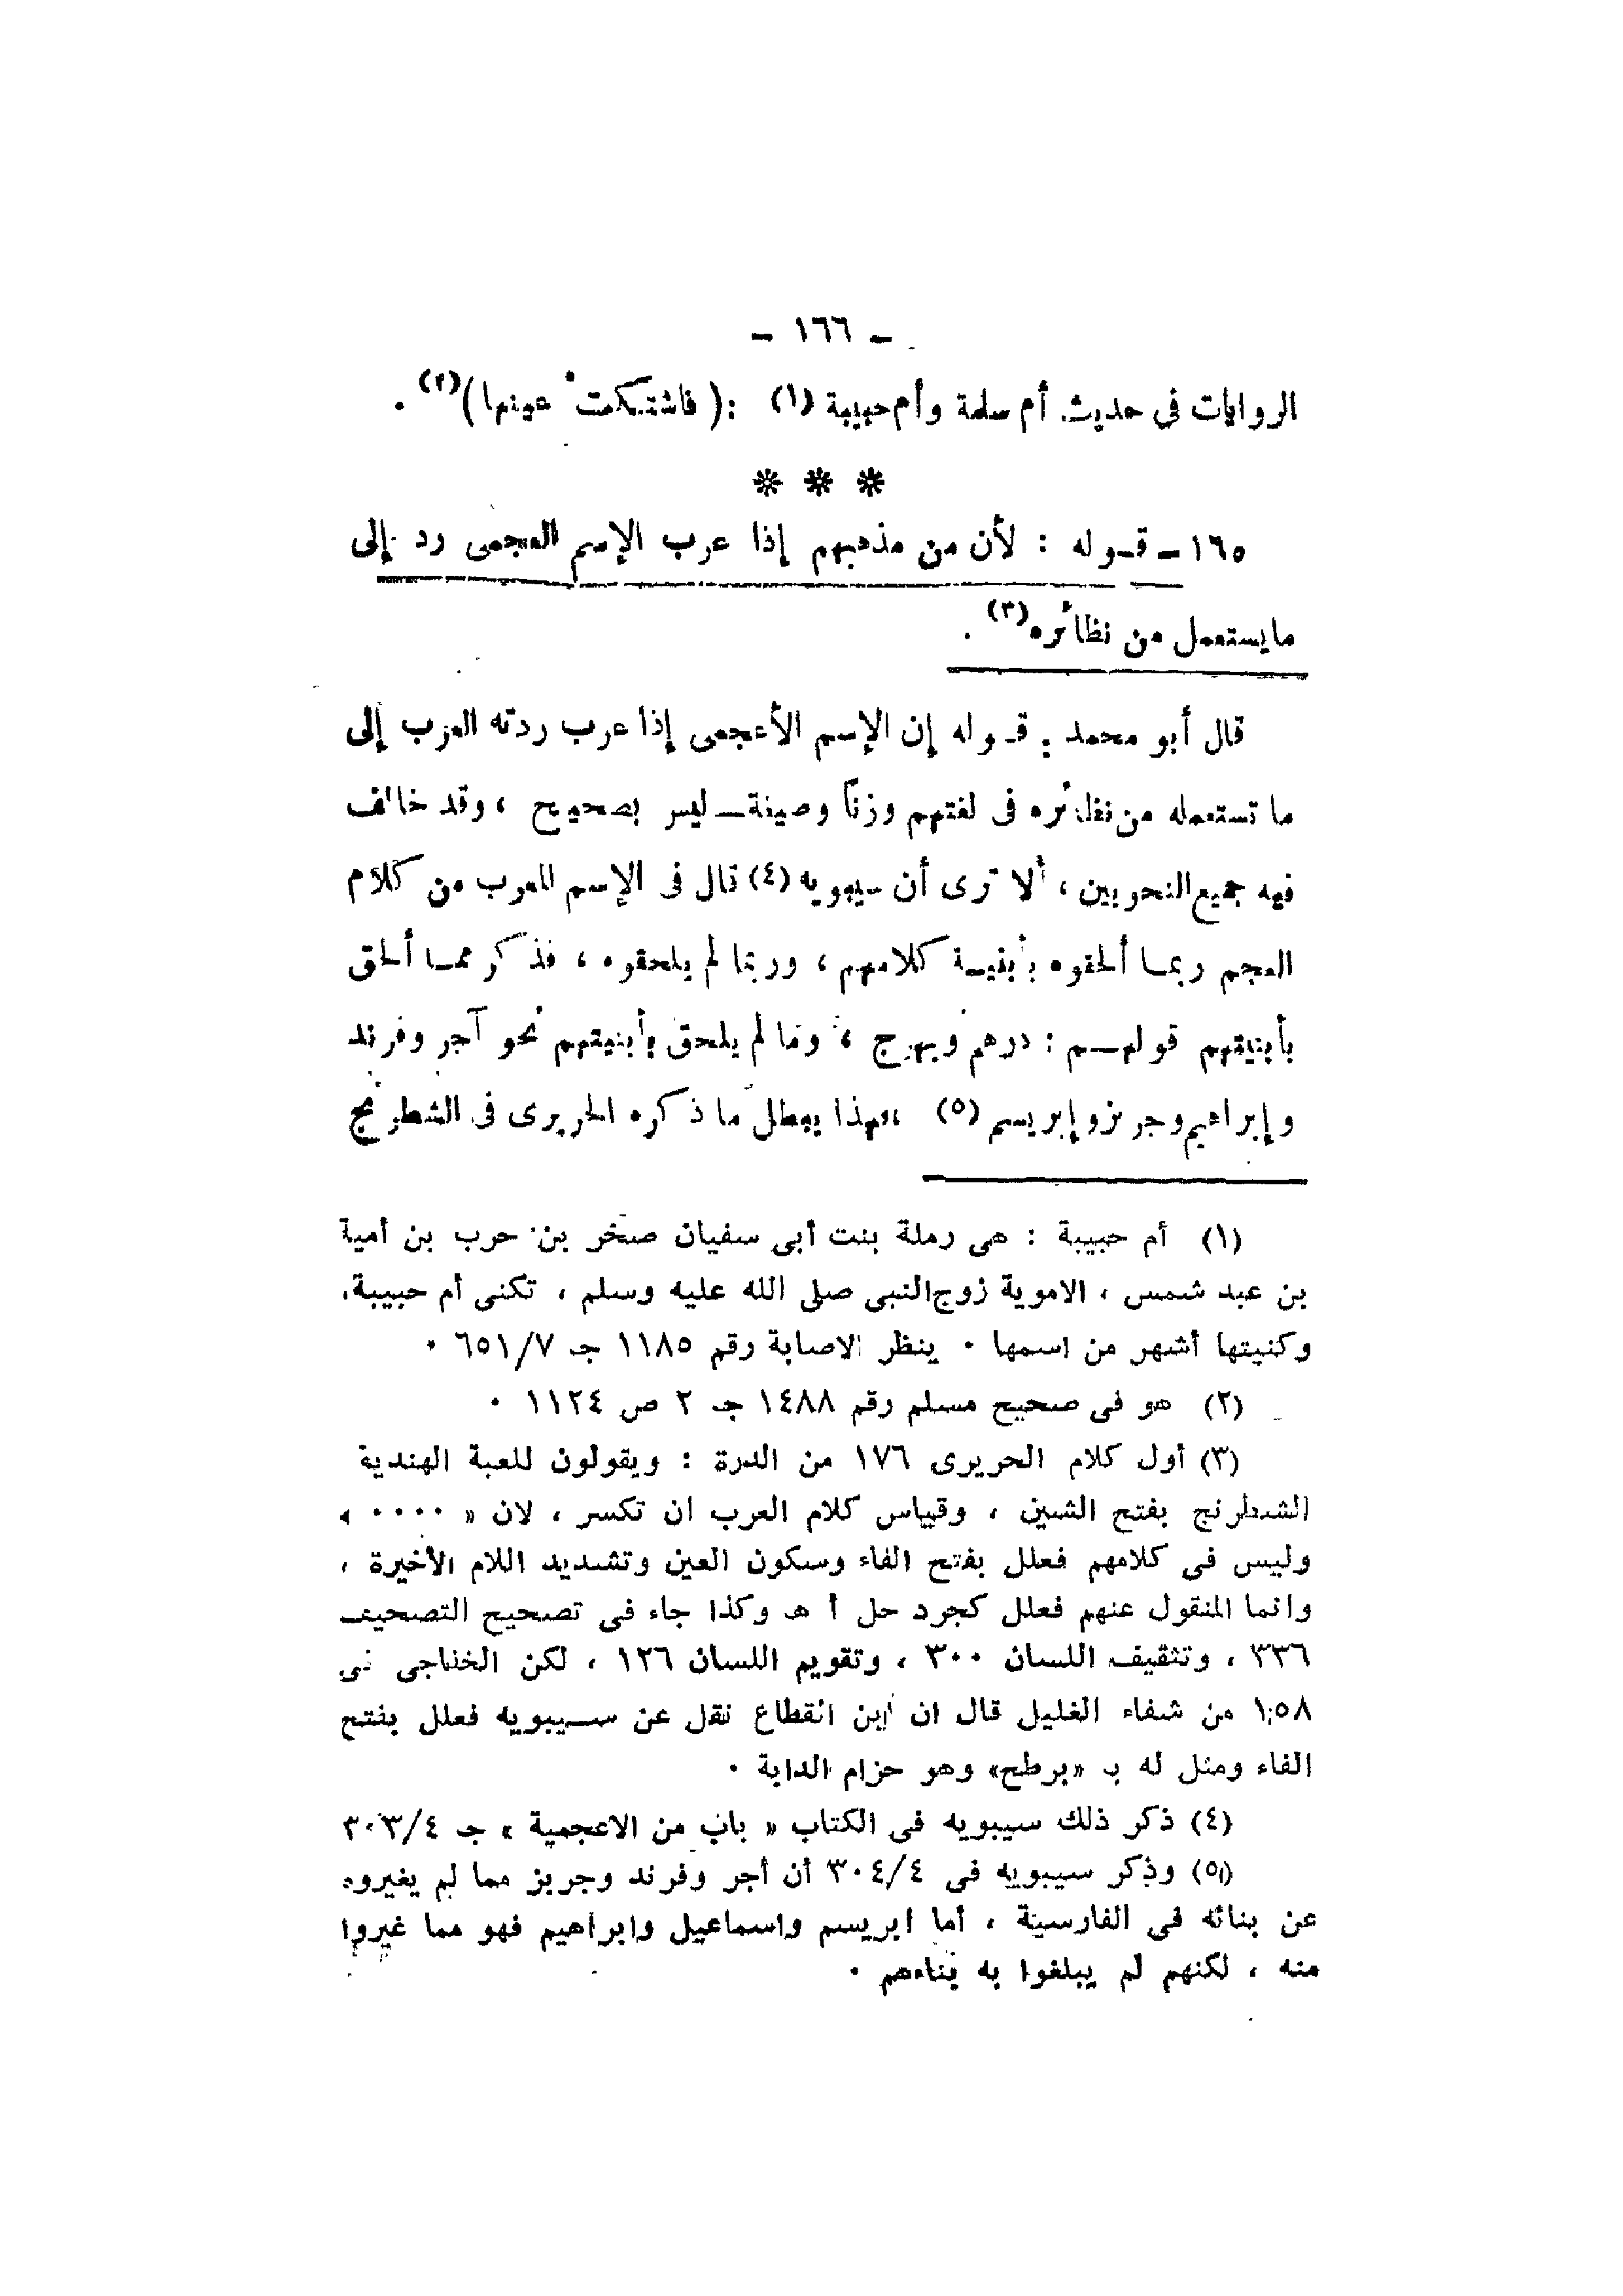 ـ ١٦٦ ـ
الروايات فى حديث أم سلمة وأم حبيبة (١) : ( فاشتكت عينها )(٢) .
* * *
١٦٥ ـ قـوله : لأن من مذهبهم إذا عرب الإسم العجمى رد إلى
مايستعمل من نظائره(٣) .
قال أبو محمد : قـوله إن الإسم الأعجمى إذا عرب ردته العرب إلى
ما تستعمله من نظائره فى لغتهم وزنا وصيغة ــ ليس بصحيح ، وقد خالف
فيه جميع النحويين ، ألا ترى أن سيبويه (٤) قال فى الإسم المعرب من كلام
العجم ربمـا ألحقوه بأبنيـة كلامهم ، وربما لم يلحقوه ، فذكر ممـا ألحق
بأبنيتهم قولهــم : درهم وبهرج ، وما لم يلحق بأبنيتهم نحو آجر وفرند
وإبراهيم وجربز وإبريسم (٥) ، فهذا يبطل ما ذكره الحريرى فى الشطرنج
(١) أم حبيبة : هى رملة بنت أبى سفيان صخر بن حرب بن أمية
بن عبد شمس ، الاموية زوج النبى صلى الله عليه وسلم ، تكنى أم حبيبة،
وكنيتها أشهر من اسمها ٠ ينظر الاصابة رقم ١١٨٥ جـ ٦٥١/٧ ٠
(٢) هو فى صحيح مسلم رقم ١٤٨٨ جـ ٢ ص ١١٢٤ ٠
(٣) أول كلام الحريرى ١٧٦ من الدرة : ويقولون للعبة الهندية
الشطرنج بفتح الشين ، وقياس كلام العرب ان تكسر ، لان « ٠٠٠٠ »
وليس فى كلامهم فعلل بفتح الفاء وسكون العين وتشديد اللام الأخيرة ،
وانما المنقول عنهم فعلل كجرد حل أ هـ وكذا جاء فى تصحيح التصحيف
٣٣٦ ، وتثقيف اللسان ٣٠٠ ، وتقويم اللسان ١٢٦ ، لكن الخفاجى فى
١٥٨ من شفاء الغليل قال ان ابن القطاع نقل عن ســيبويه فعلل بفتح
الفاء ومثل له بـ «برطح» وهو حزام الدابة ٠
(٤) ذكر ذلك سيبويه فى الكتاب « باب من الاعجمية » جـ ٣٠٣/٤
(٥) وذكر سيبويه فى ٣٠٤/٤ أن أجر وفرند وجربز مما لم يغيروه
عن بنائه فى الفارسية ، أما ابريسم واسماعيل وابراهيم فهو مما غيروا
منه ، لكنهم لم يبلغوا به بناءهم ٠